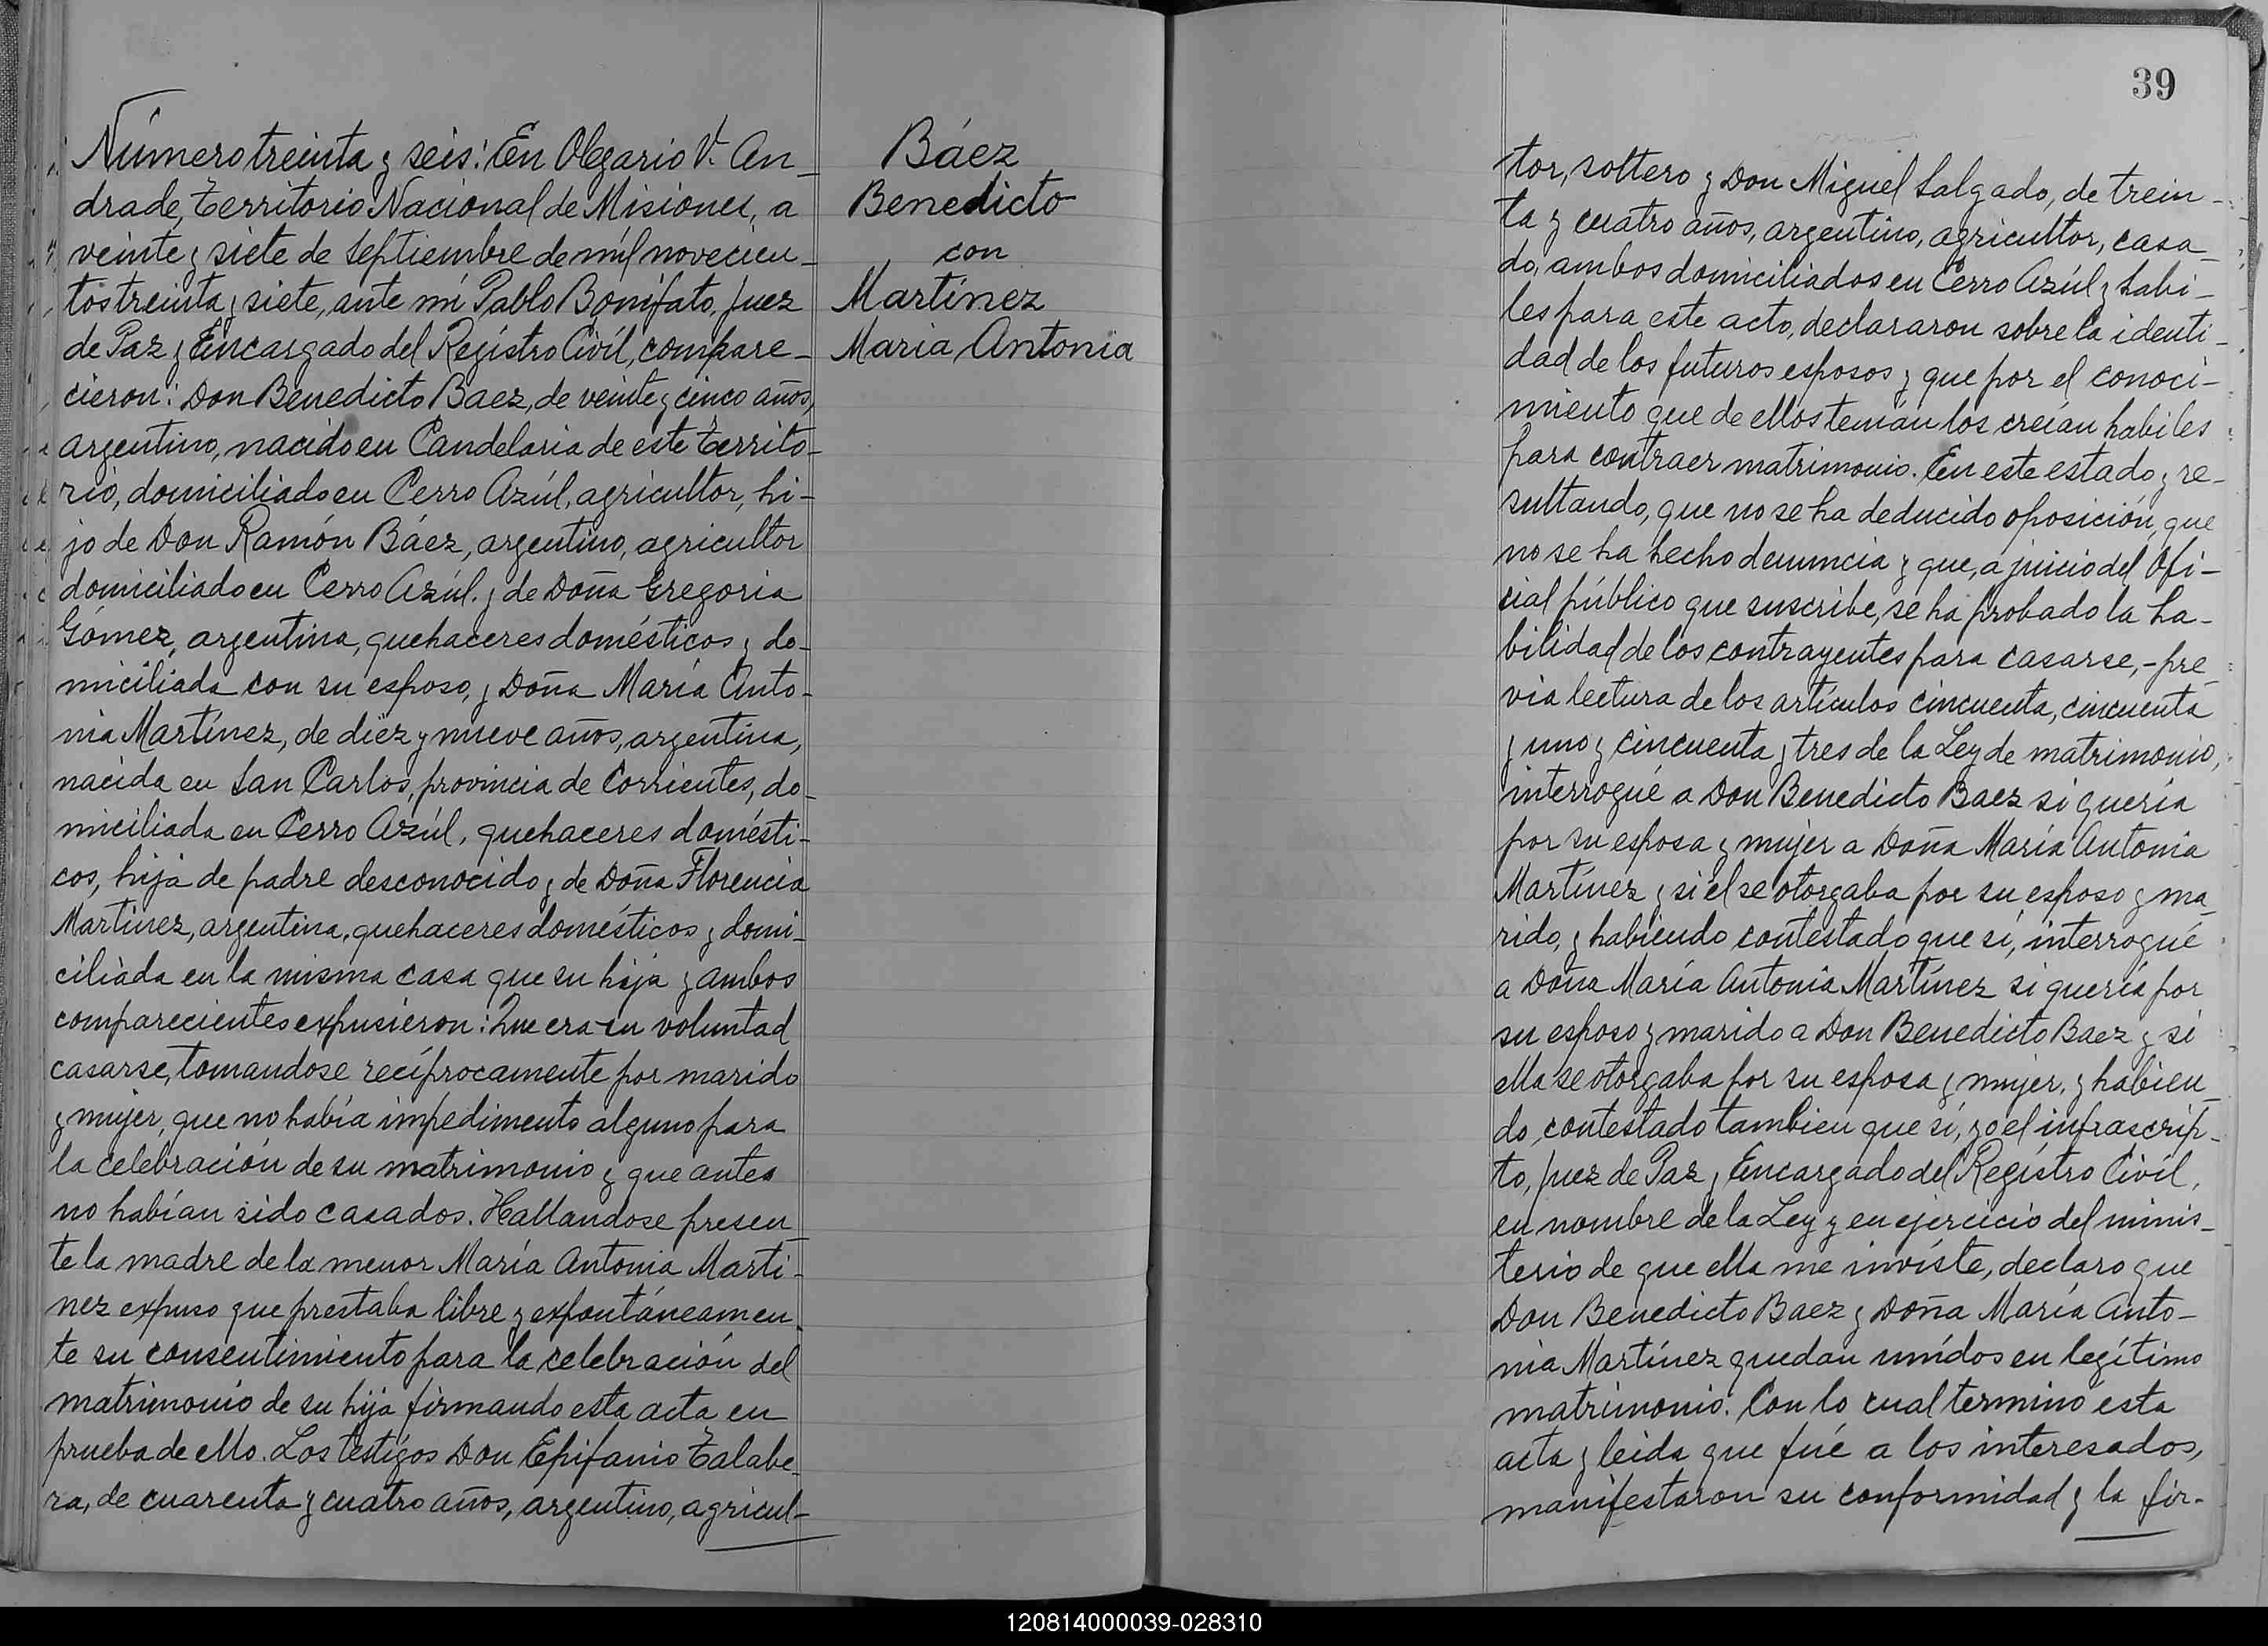 Número treinta y seis: En Olegario V. An-
drade, Territorio Nacional de Misiones, a
veinte y siete de septiembre de mil novecien-
tos treinta y siete, ante mí Pablo Bonifato, Juez
de Paz y Encargado del Regístro Civíl, compare-
cieron: Don Benedicto Baez, de veinte y cinco años,
argentino, nacido en Candelaria de este territo-
rio, domiciliado en Cerro Azúl, agricultor, hi-
jo de Don Ramón Báez, argentino, agricultor
domiciliado en Cerro Azúl. y de Doña Gregoria
Gómez, argentina, quehaceres domésticos y do-
miciliada con su esposo, y Doña María Anto-
nia Martínez, de diez y nueve años, argentina,
nacida en San Carlos, provincia de Corrientes, do-
miciliada en Cerro Azúl, quehaceres domésti-
cos, hija de padre desconocido y de Doña Florencia
Martinez, argentina, quehaceres domésticos y domi-
ciliada en la misma casa que su hija y ambos
comparecientes expusieron: Que era su voluntad
casarse, tomandose recíprocamente por marido
y mujer, que no había impedimento alguno para
la celebración de su matrimonio y que antes
no habían sido casados. Hallandose presen-
te la madre de la menor María Antonia Marti-
nez expuso que prestaba libre y expontáneamen-
te su consentimiento para la celebración del
matrimonio de su hija firmando esta acta en
prueba de ello. Los testigos Don Epifanio Talabe-
ra, de cuarenta y cuatro años, argentino, agricul-
Báez
Benedicto
con
Martínez
María Antonia
39
tor, soltero y Don Miguel Salgado, de trein-
ta y cuatro años, argentino, agricultor, casa-
do, ambos domiciliados en Cerro Azúl y habi-
les para este acto, declararon sobre la identi-
dad de los futuros esposos y que por el conoci-
miento que de ellos tenían los creían habiles
para contraer matrimonio. En este estado y re-
sultando, que no se ha deducido oposición, que
no se ha hecho denuncia y que, a juicio del Ofi-
cial público que suscribe, se ha probado la ha-
bilidad de los contrayentes para casarse, - pre-
via lectura de los artículos cincuenta, cincuenta
y uno y cincuenta y tres de la Ley de matrimonio,
interrogué a Don Benedicto Baez si quería
por su esposa y mujer a Doña María Antonia
Martínez y si él se otorgaba por su esposo y ma-
rido, y habiendo contestado que sí, interrogué
a Doña María Antonia Martínez si quería por
su esposo y marido a Don Benedicto Baez y si
ella se otorgaba por su esposa y mujer, y habien-
do contestado tambien que sí, yo el infrascrip-
to, Juez de Paz y Encargado del Regístro Civíl,
en nombre de la Ley y en ejercicio del minis-
terio de que ella me invíste, declaro que
Don Benedicto Baez y Doña María Anto-
nia Martínez quedan unídos en legítimo
matrimonio. Con lo cual termino esta
acta y leida que fué a los interesados,
manifestaron su conformidad y la fir-
120814000039-028310